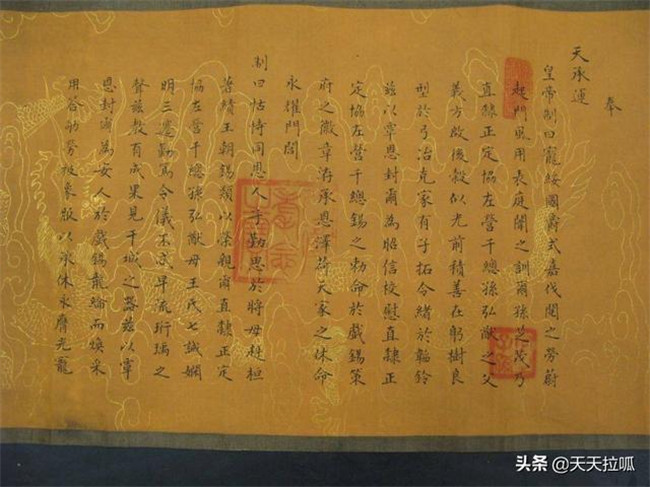 奉
天承運
皇帝制曰寵綏國爵式嘉伐閱之勞蔚
起門風用表庭闈之訓爾孫芝茂乃
直隸正定協左營千總孫弘猷之父
義方啟後穀似光前積善在躬樹良
型於弓冶克家有子拓令緒於韜鈐
茲以覃恩封爾為昭信校慰直隸正
定協左營千總錫之勅命於戲錫策
府之徽章洊承恩澤荷天家之休命
永耀門閭
制曰怙恃同恩人子勤思於將母赳桓
著績王朝錫類以榮親爾直隸正定
協左營千總孫弘猷母王氏七誡嫻
明三遷勤篤令儀不忒早流珩瑀之
聲慈教有成果見干城之器茲以覃
恩封爾為安人於戲錫龍綸而煥采
用答劬勞被象服以承休永膺光寵
头条 @天天拉呱